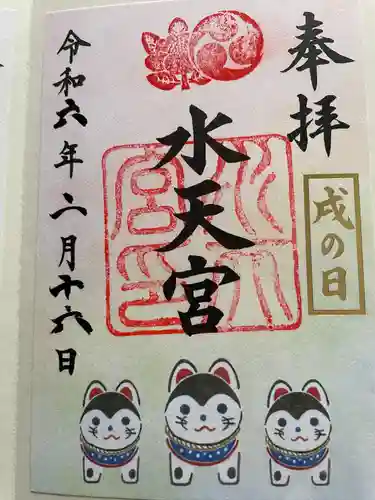 奉拝
戌の日
水天宮
水天宮印
令和六年二月十六日